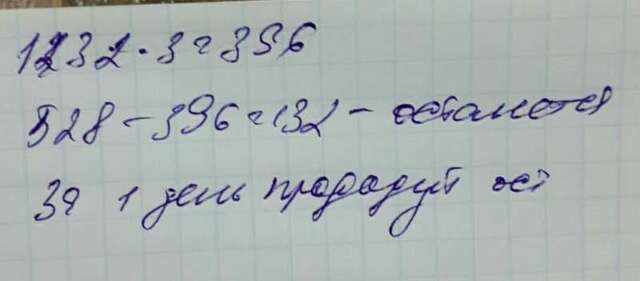 132 · 3 = 396
528 - 396 = 132 - останется
За 1 день продадут ост